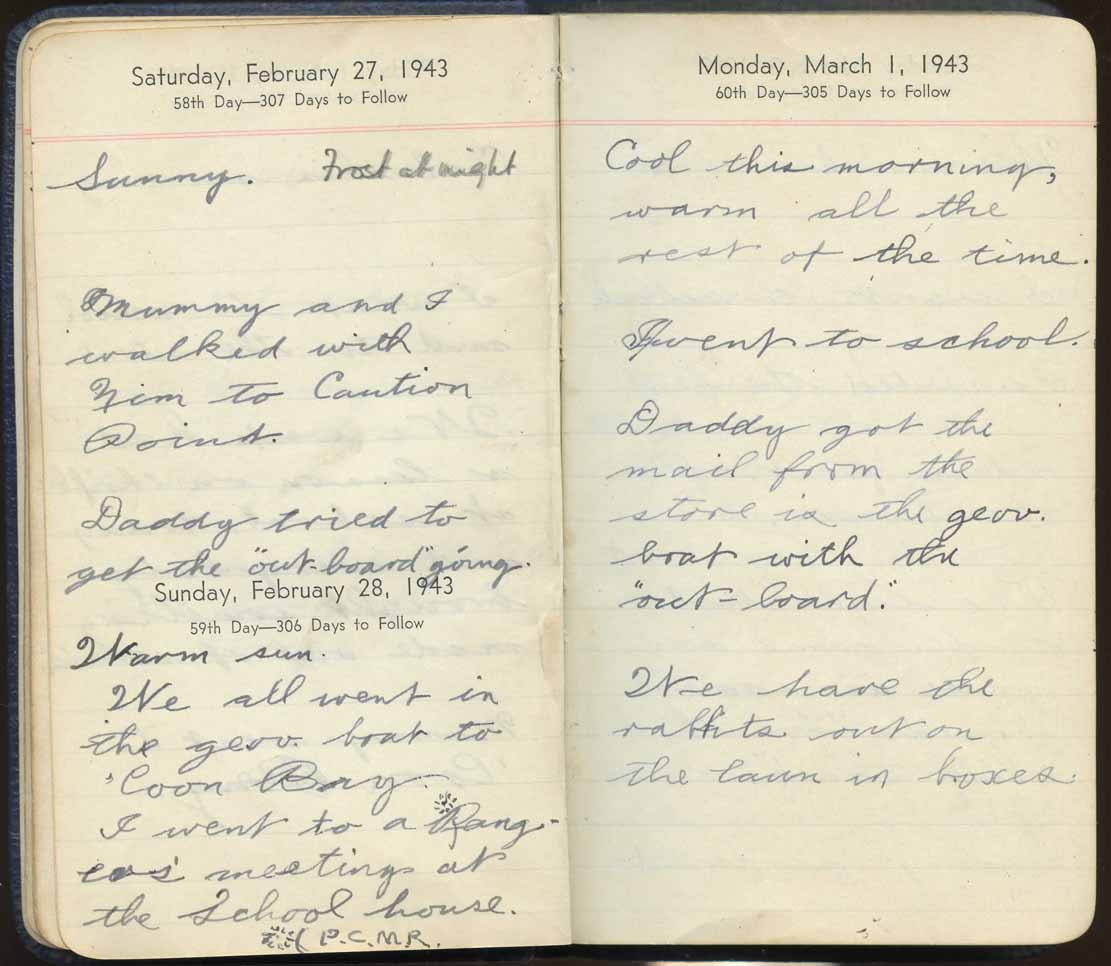 Saturday, February 27, 1943
58th Day—307 Days to Follow
Sunny. Frost at night
Mummy and I
walked with
Jim to Caution
Point.
Daddy tried to
get the "out-board" going.
Sunday, February 28, 1943
59th Day—306 Days to Follow
Warm sun.
We all went in
the gov. boat to
'Coon Bay.
I went to a Rang-
ers' meeting at
the School house.
( P.C.M.R.
Monday, March 1, 1943
60th Day—305 Days to Follow
Cool this morning,
warm all the
rest of the time.
I went to school.
Daddy got the
mail from the
store in the gov.
boat with the
"out-board".
We have the
rabbits out on
the lawn in boxes.